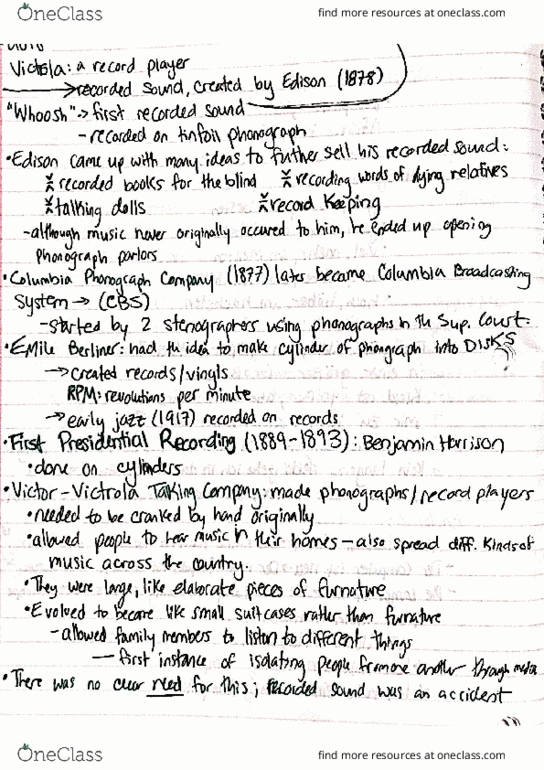 OneClass
find more resources at oneclass.com
Victrola: a record player
→ recorded sound, created by Edison (1878)
"Whoosh" → first recorded sound
- recorded on tinfoil phonograph
• Edison came up with many ideas to futher sell his recorded sound:
recorded books for the blind recording words of dying relatives
talking dolls record keeping
- although music never originally occured to him, he ended up opening
phonograph parlors
• Columbia Phonograph Company (1877) later became Columbia Broadcasting
System → (CBS)
- started by 2 stenographers using phonographs in the Sup. Court.
• Emile Berliner: had the idea to make cylinder of phonograph into DISKS
→ created records/vinyls
RPM: revolutions per minute
→ early jazz (1917) recorded on records
• First Presidential Recording (1889-1893): Benjamin Harrison
• done on cylinders
• Victor-Victrola Talking Company: made phonographs/record players
• needed to be cranked by hand originally
• allowed people to hear music in their homes - also spread diff. kinds of
music across the country.
• They were large, like elaborate pieces of furnature
• Evolved to become like small suitcases rather than furnature
- allowed family members to listen to different things
- first instance of isolating people from one another through media
• There was no clear need for this; recorded sound was an accident
OneClass
find more resources at oneclass.com